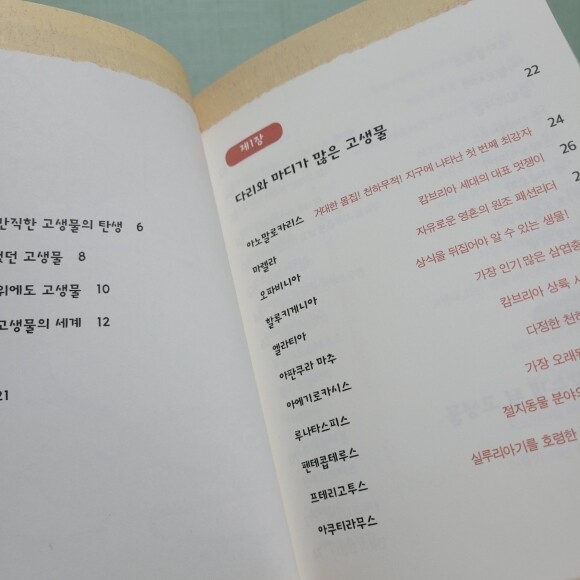 만직한 고생물의 탄생 6
했던 고생물 8
위에도 고생물 10
고생물의 세계 12
21
제1장
다리와 마디가 많은 고생물 22
아노말로카리스 거대한 몸집! 천하무적! 지구에 나타난 첫 번째 최강자 24
마렐라 캄브리아 세대의 대표 멋쟁이 26
오파비니아 자유로운 영혼의 원조 패션리더 2
할루키게니아 상식을 뒤집어야 알 수 있는 생물!
엘라티아 가장 인기 많은 삼엽충
아판쿠라 마추 캄브리아 상륙 사
아에기로카시스 다정한 천하
루나타스피스 가장 오래된
펜테콥테루스 절지동물 분야의
프테리고투스 실루리아기를 호령한
아쿠티라무스